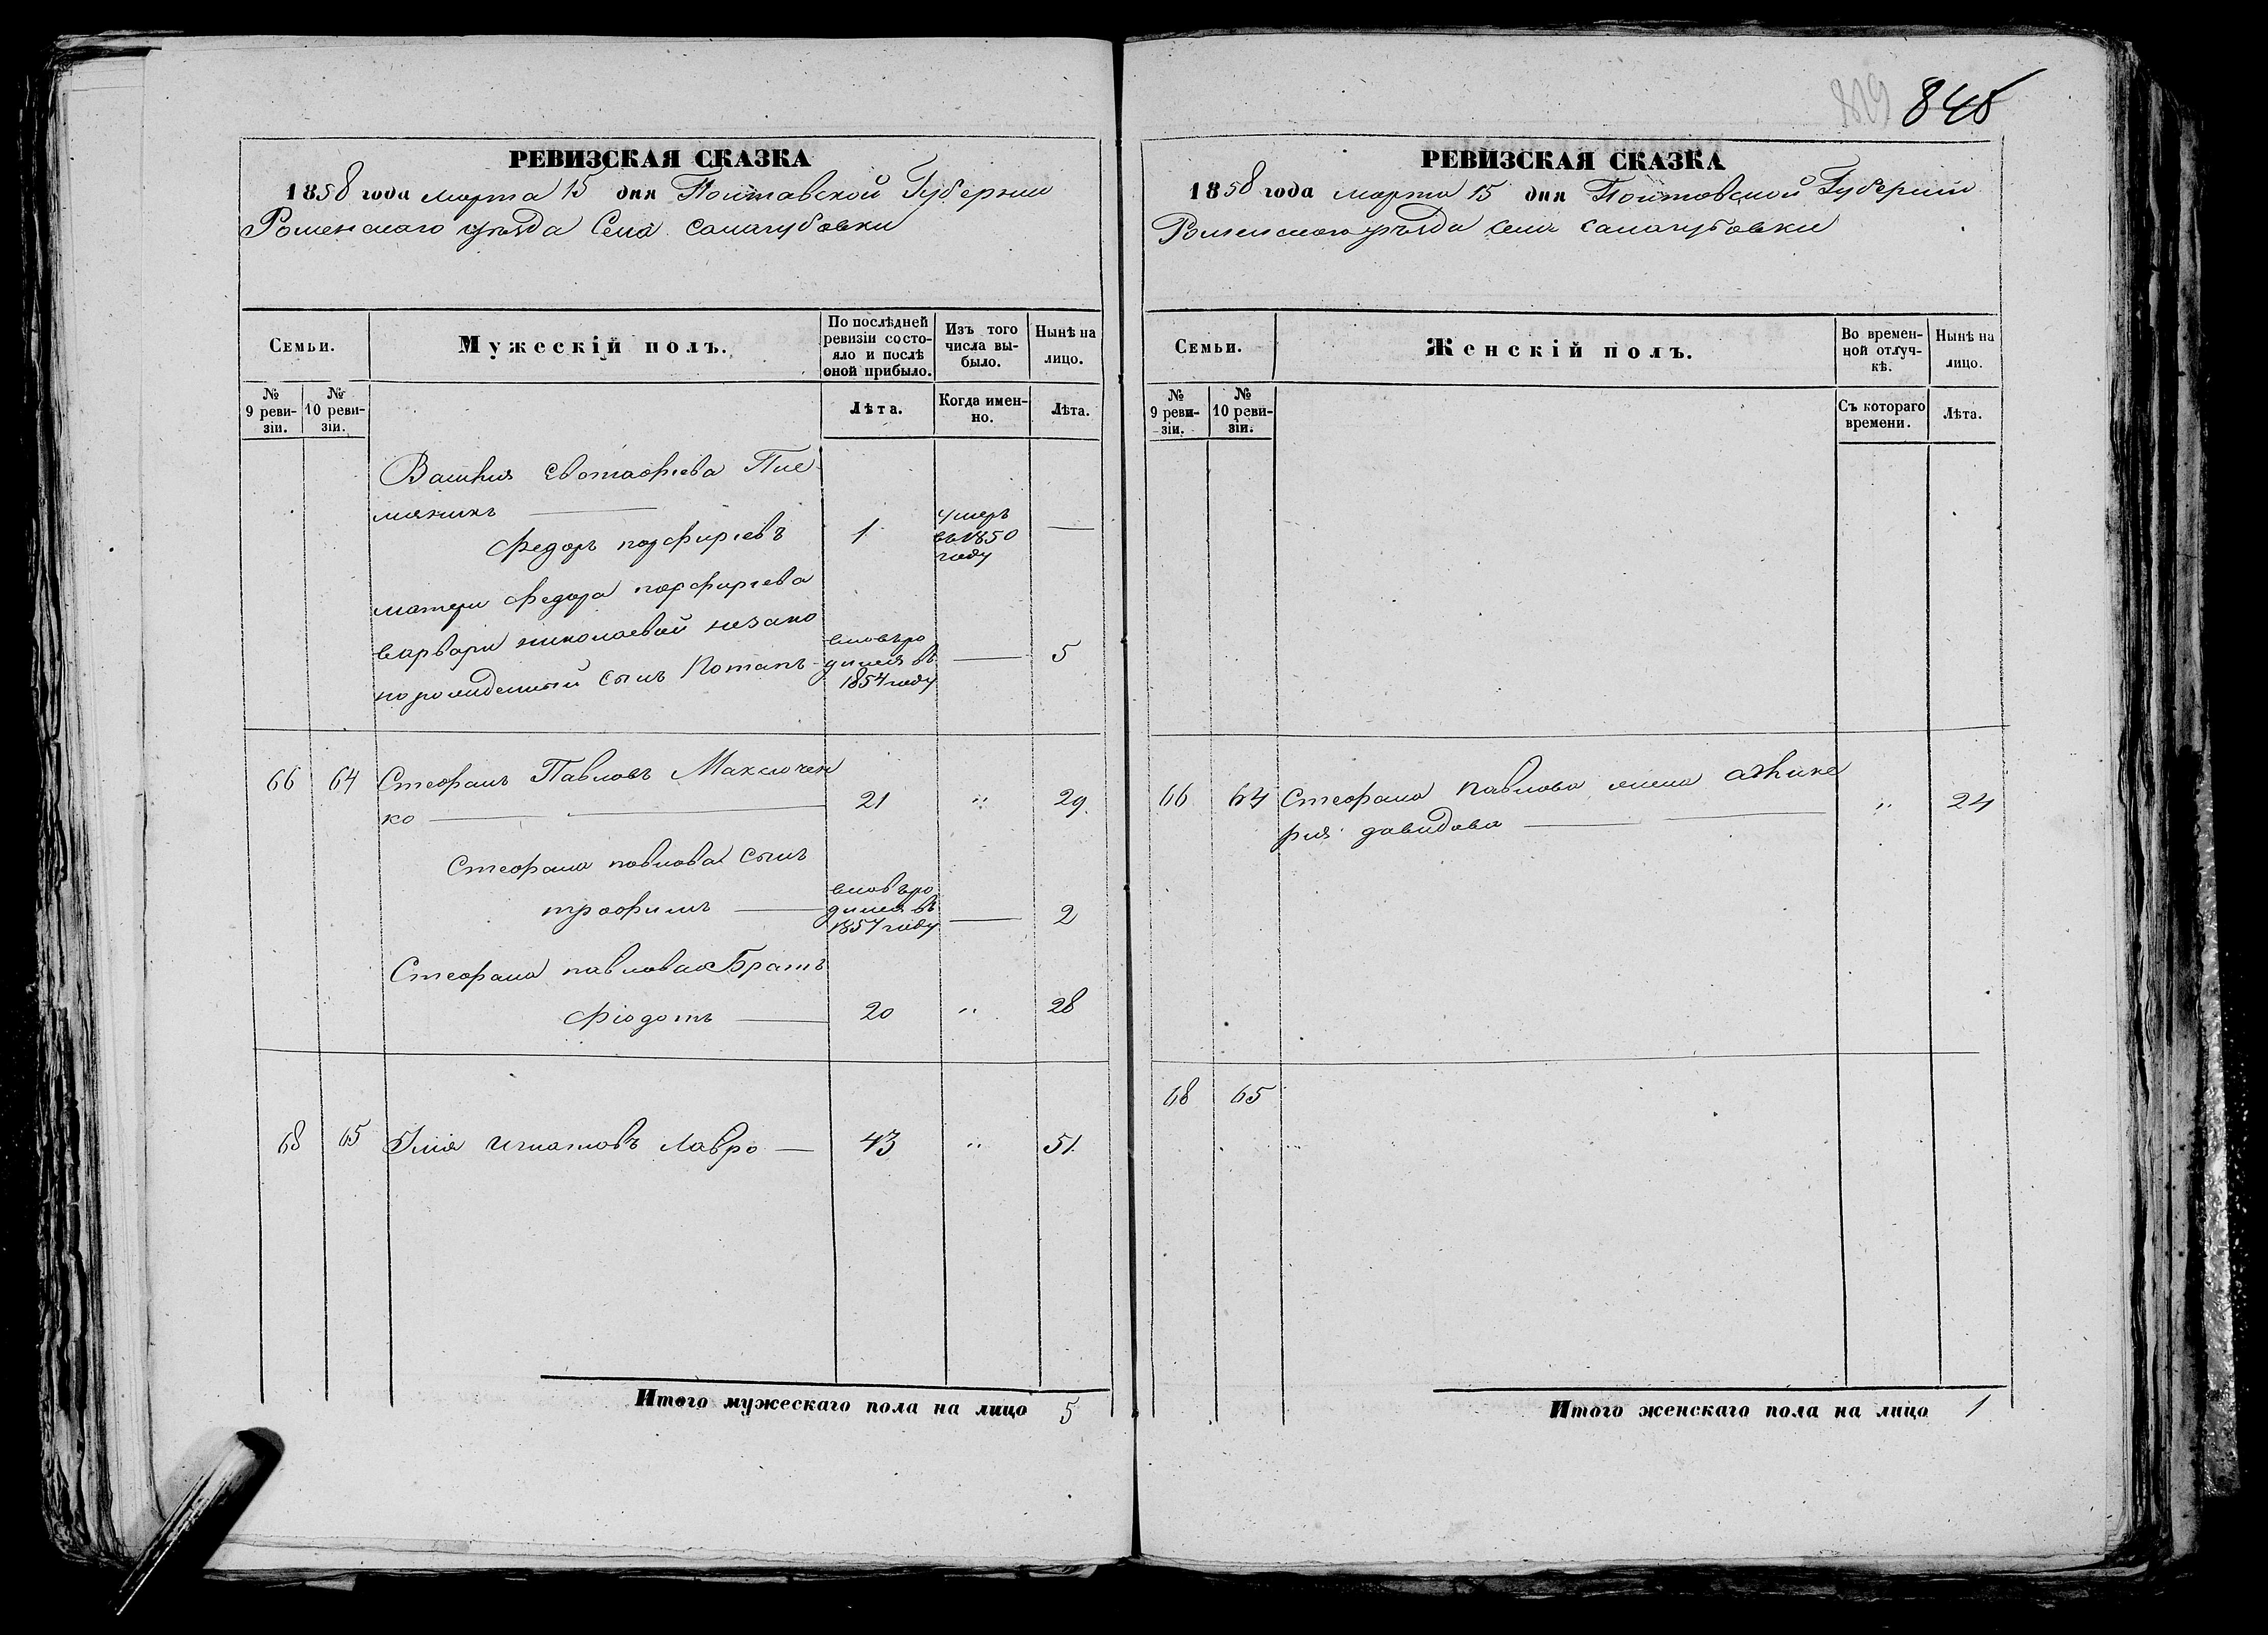 819 845
РЕВИЗСКАЯ СКАЗКА
1858 года марта 15 дня Полтавской Губернии
Роменскаго уѣзда Села Салагубовки
Семьи.
Мужескій полъ.
По послѣдней ревизіи состояло и послѣ оной прибыло.
Изъ того числа выбыло.
Нынѣ на лицо.
№ 9 ревизіи.
№ 10 ревизіи.
Лѣта.
Когда именно.
Лѣта.
Василия Евстафіева Пле
мяникъ
Федоръ порфиріевъ 1 умеръ въ 1850 году —
матери Федора порфиріева
варвари николаевой незако
норожденный сынъ Потапъ вновь родился въ 1854 году — 5
66 64 Стефанъ Павловъ Максючен
ко 21 " 29
Стефана павлова сынъ
трофимъ вновь родился въ 1857 году — 2
Стефана павлова Братъ
Фіодотъ 20 " 28
68 65 Илія игнатовъ Лавро 43 " 51
Итого мужескаго пола на лицо 5
РЕВИЗСКАЯ СКАЗКА
1858 года марта 15 дня Полтовской Губернии
Роменскаго уѣзда села Салагубовки
Семьи.
Женскій полъ.
Во временной отлучкѣ.
Нынѣ на лицо.
№ 9 ревизіи.
№ 10 ревизіи.
Съ котораго времени.
Лѣта.
66 64 Стефана Павлова жена
давидова " 24
68 65
Итого женскаго пола на лицо 1